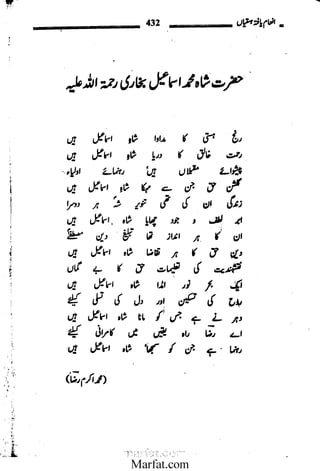 انعام یافتہ ہستیاں 432
حضرت شاہ محمد اسماعیل بخاری رحمۃ اللہ علیہ
رنج ہستی کا مداوا شاہ اسماعیل ہیں
رحمت خالق کا دریا شاہ اسماعیل ہیں
پیشوائے مقبلاں ہیں رہنمائے اولیاء
گلشن حق جن سے مہکا شاہ اسماعیل ہیں
زندگی ان کی تھی تنویر شہ ہر دوسرا
ابر لطف و جود چھایا شاہ اسماعیل ہیں
ان کا ہر انداز تھا تبلیغ دین مصطفےٰ
دین حق کا ہر تقاضا شاہ اسماعیل ہیں
نقشبندیت کی تعلیمات حق کا بے گماں
ایک بحر نور افزا شاہ اسماعیل ہیں
روح کی تسکین اور دل کی تسلی کیلئے
دہر نے ہے جس کو مانا شاہ اسماعیل ہیں
اے رضا راہ یقیں میں کامرانی کیلئے
رہنما ہے جن کو سمجھا شاہ اسماعیل ہیں
(محمد اکرم رضا)
marfat.com
Marfat.com